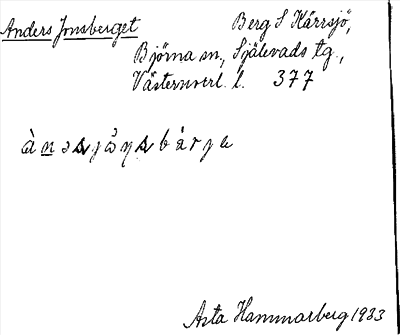 Anders Jonsberget Berg S Kärrsjö,
Björna sn., Själevads tg.,
Västernorrl. l. 377
Asta Hammarberg 1933